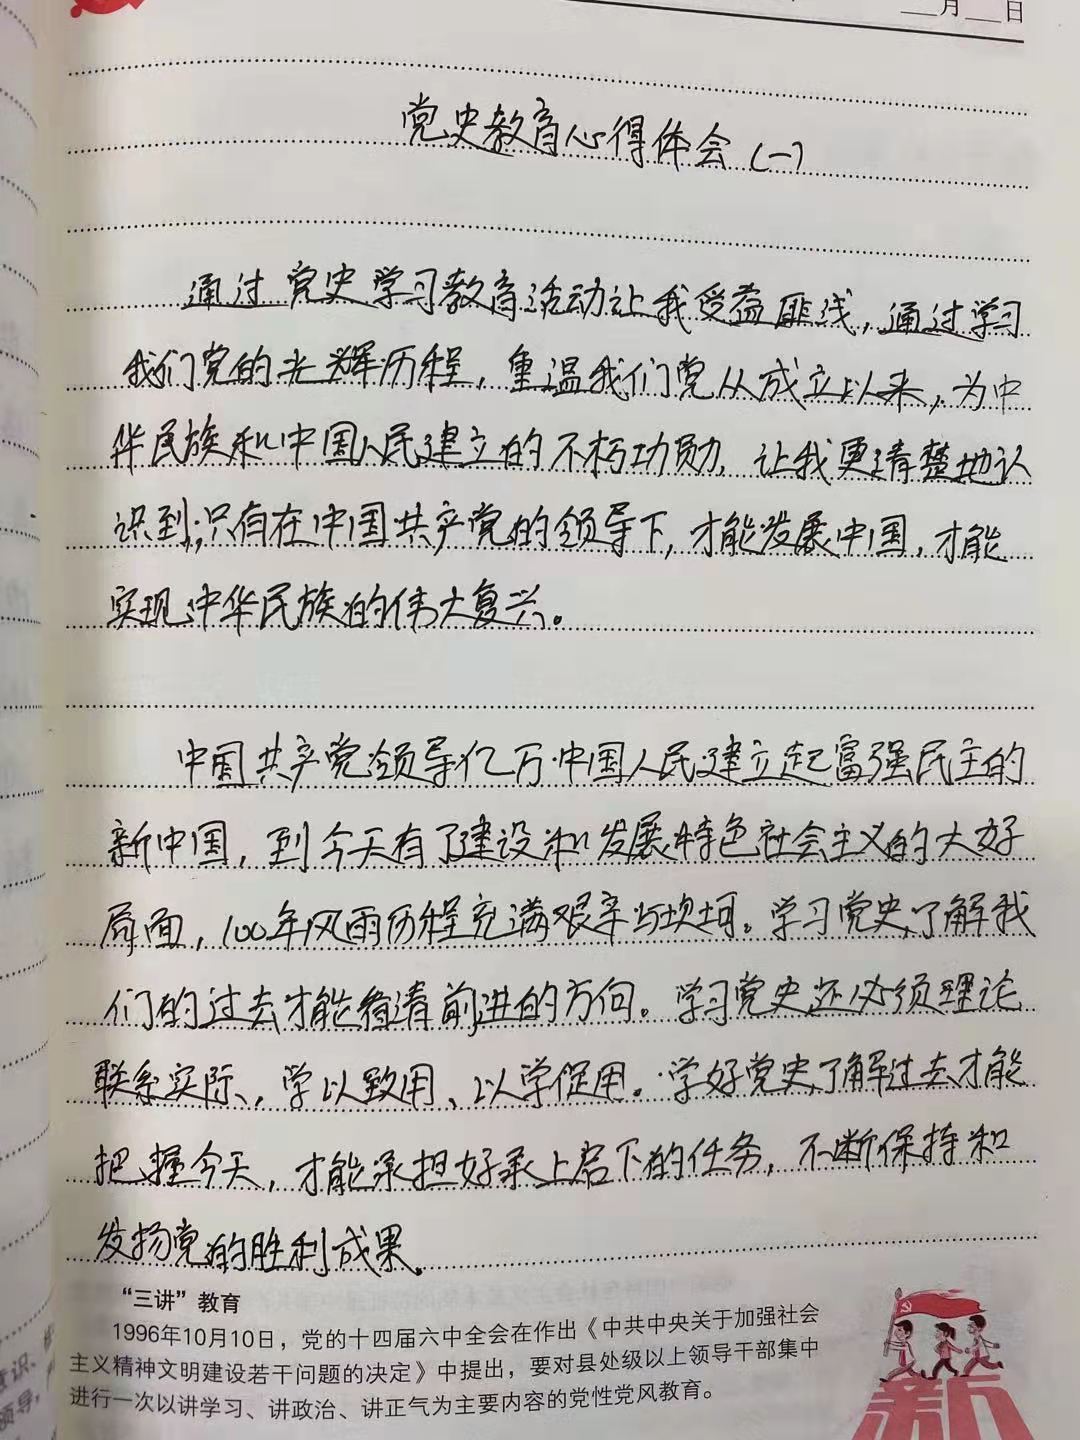 月 日
党史教育心得体会(一)
通过党史学习教育活动让我受益匪浅,通过学习
我们党的光辉历程,重温我们党从成立以来,为中
华民族和中国人民建立的不朽功勋,让我更清楚地认
识到;只有在中国共产党的领导下,才能发展中国,才能
实现中华民族的伟大复兴。
中国共产党领导亿万中国人民建立起富强民主的
新中国,到今天有了建设和发展特色社会主义的大好
局面,100年风雨历程充满艰辛与坎坷。学习党史,了解我
们的过去才能看清前进的方向。学习党史还必须理论
联系实际、,学以致用、以学促用。学好党史,了解过去才能
把握今天,才能承担好承上启下的任务,不断保持和
发扬党的胜利成果。
“三讲”教育
1996年10月10日,党的十四届六中全会在作出《中共中央关于加强社会
主义精神文明建设若干问题的决定》中提出,要对县处级以上领导干部集中
进行一次以讲学习、讲政治、讲正气为主要内容的党性党风教育。
新